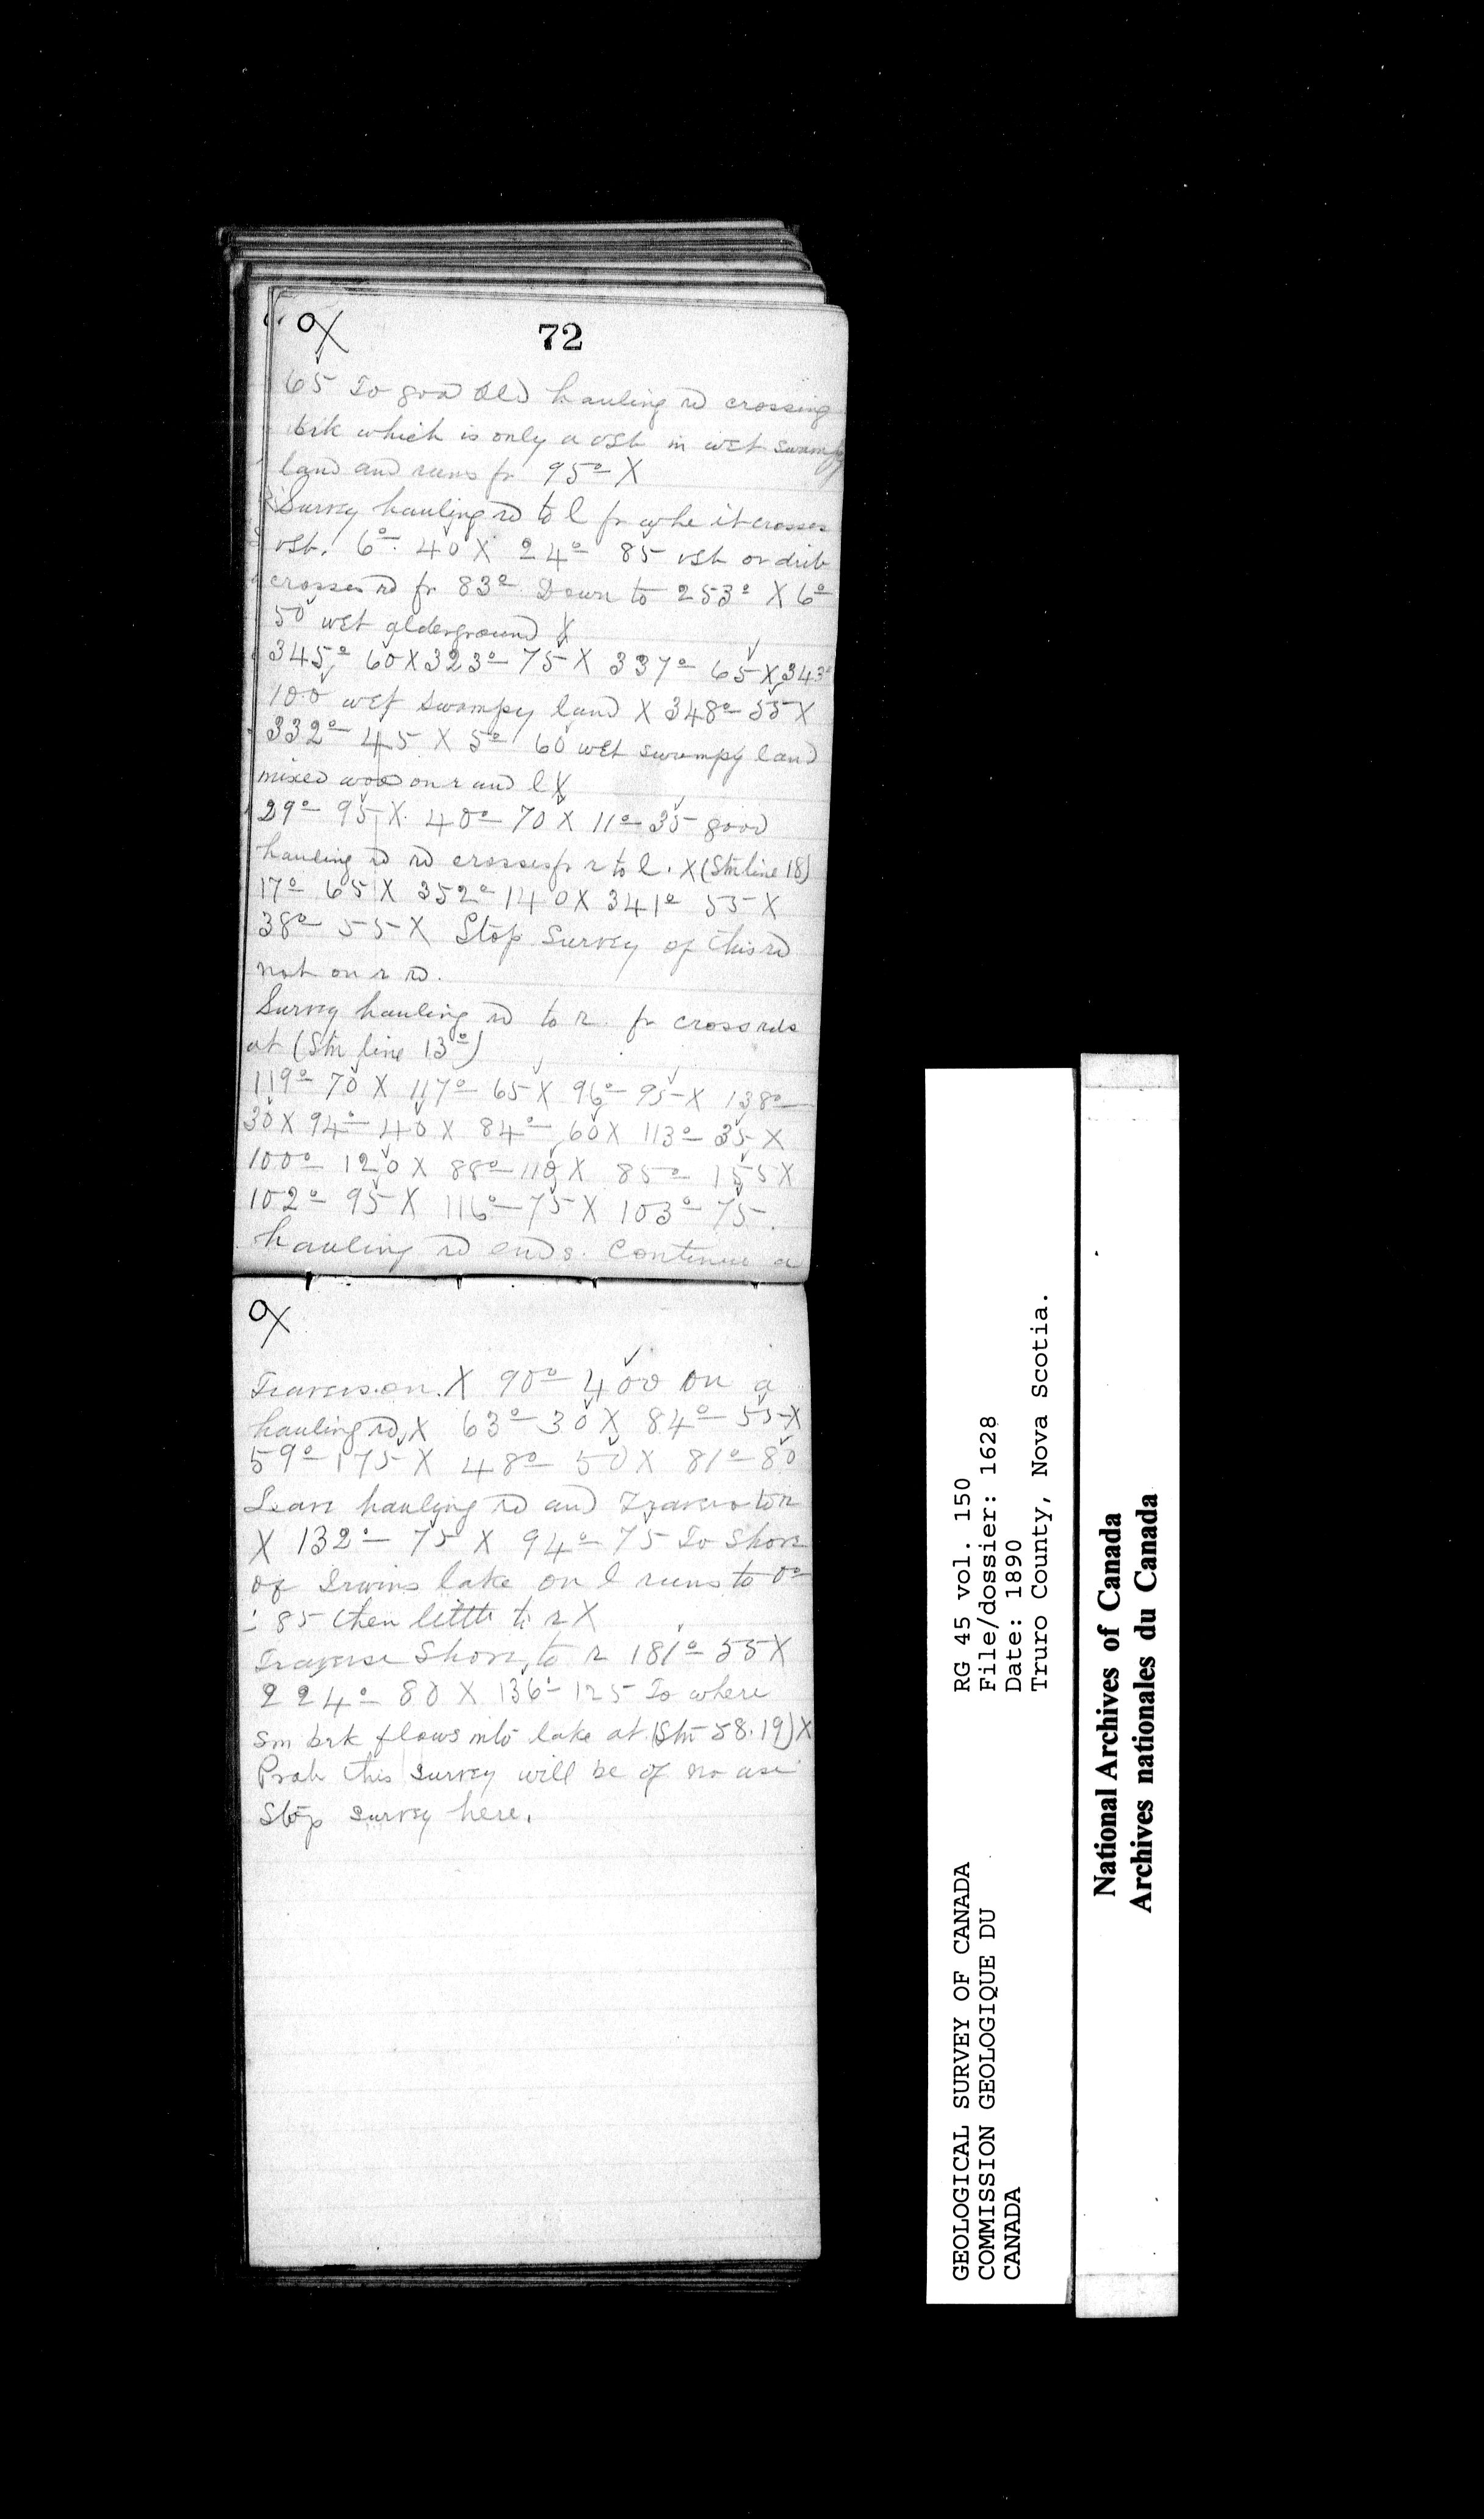 OX
72
65 To good old hauling rd crossing
brk which is only a vst in wet swampy
land and runs fr 95° X
Survey hauling rd to l fr whe it crosses
vst. 6° 40 X 24° 85 vst or
crosses rd fr 83° Down to 253° X 6°
50 wet alderground X
345° 60 X 323° 75 X 337° 65 X 343°
100 wet swampy land X 348° 55 X
332° 45 X 5° 60 wet swampy land
mixed wood on r and l X
29° 95 X 40° 70 X 11° 35 good
hauling rd rd crosses fr r to l. X (Stn line 18)
17° 65 X 352° 140 X 341° 55 X
38° 55 X Stop Survey of this rd
not on r rd.
Survey hauling rd to r. fr cross rds
at (Stn line 13°)
119° 70 X 117° 65 X 96° 95 X 138°
30 X 94° 40 X 84° 60 X 113° 35 X
100° 120 X 88° 110 X 85° 155 X
102° 95 X 116° 75 X 103° 75.
hauling rd ends. Continue a
OX
Travers on. X 90° 400 on a
hauling rd, X 63° 30 X 84° 55 X
59° 175 X 48° 50 X 81° 80
Leave hauling rd and Travers to r
X 132° 75 X 94° 75 To Shore
of Irwins lake on l runs to 0°
: 85 then little to r X
Traverse Shore, to r 181° 55 X
224° 80 X 136° 125 To where
Sm brk flows into lake at (Stn 58.19) X
Prob this survey will be of no use
Stop survey here.
GEOLOGICAL SURVEY OF CANADA
COMMISSION GEOLOGIQUE DU
CANADA
RG 45 vol. 150
File/dossier: 1628
Date: 1890
Truro County, Nova Scotia.
National Archives of Canada
Archives nationales du Canada